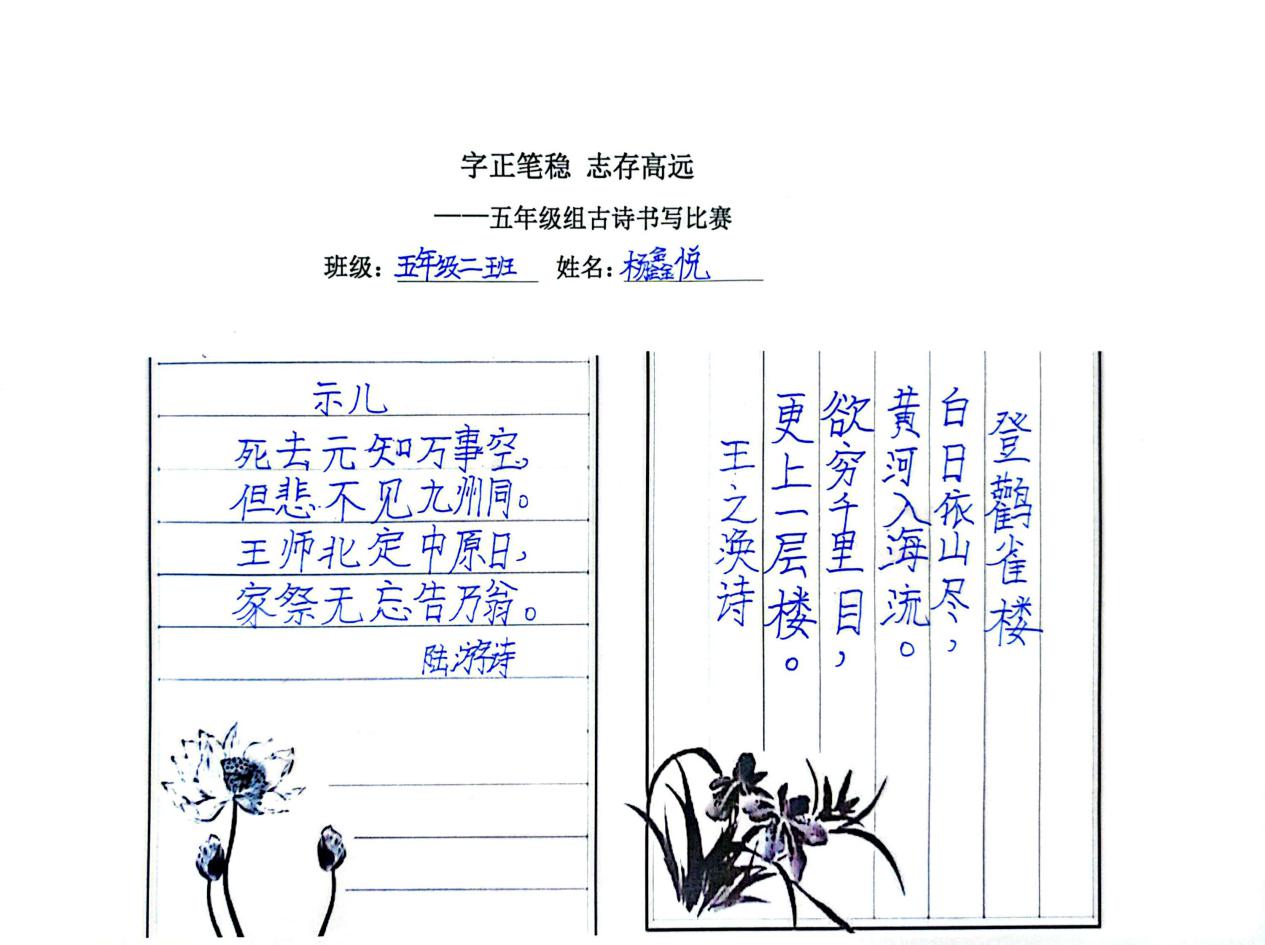 字正笔稳 志存高远
——五年级组古诗书写比赛
班级：五年级二班 姓名：杨鑫悦
示儿
死去元知万事空，
但悲不见九州同。
王师北定中原日，
家祭无忘告乃翁。
陆游诗
登鹳雀楼
白日依山尽，
黄河入海流。
欲穷千里目，
更上一层楼。
王之涣诗